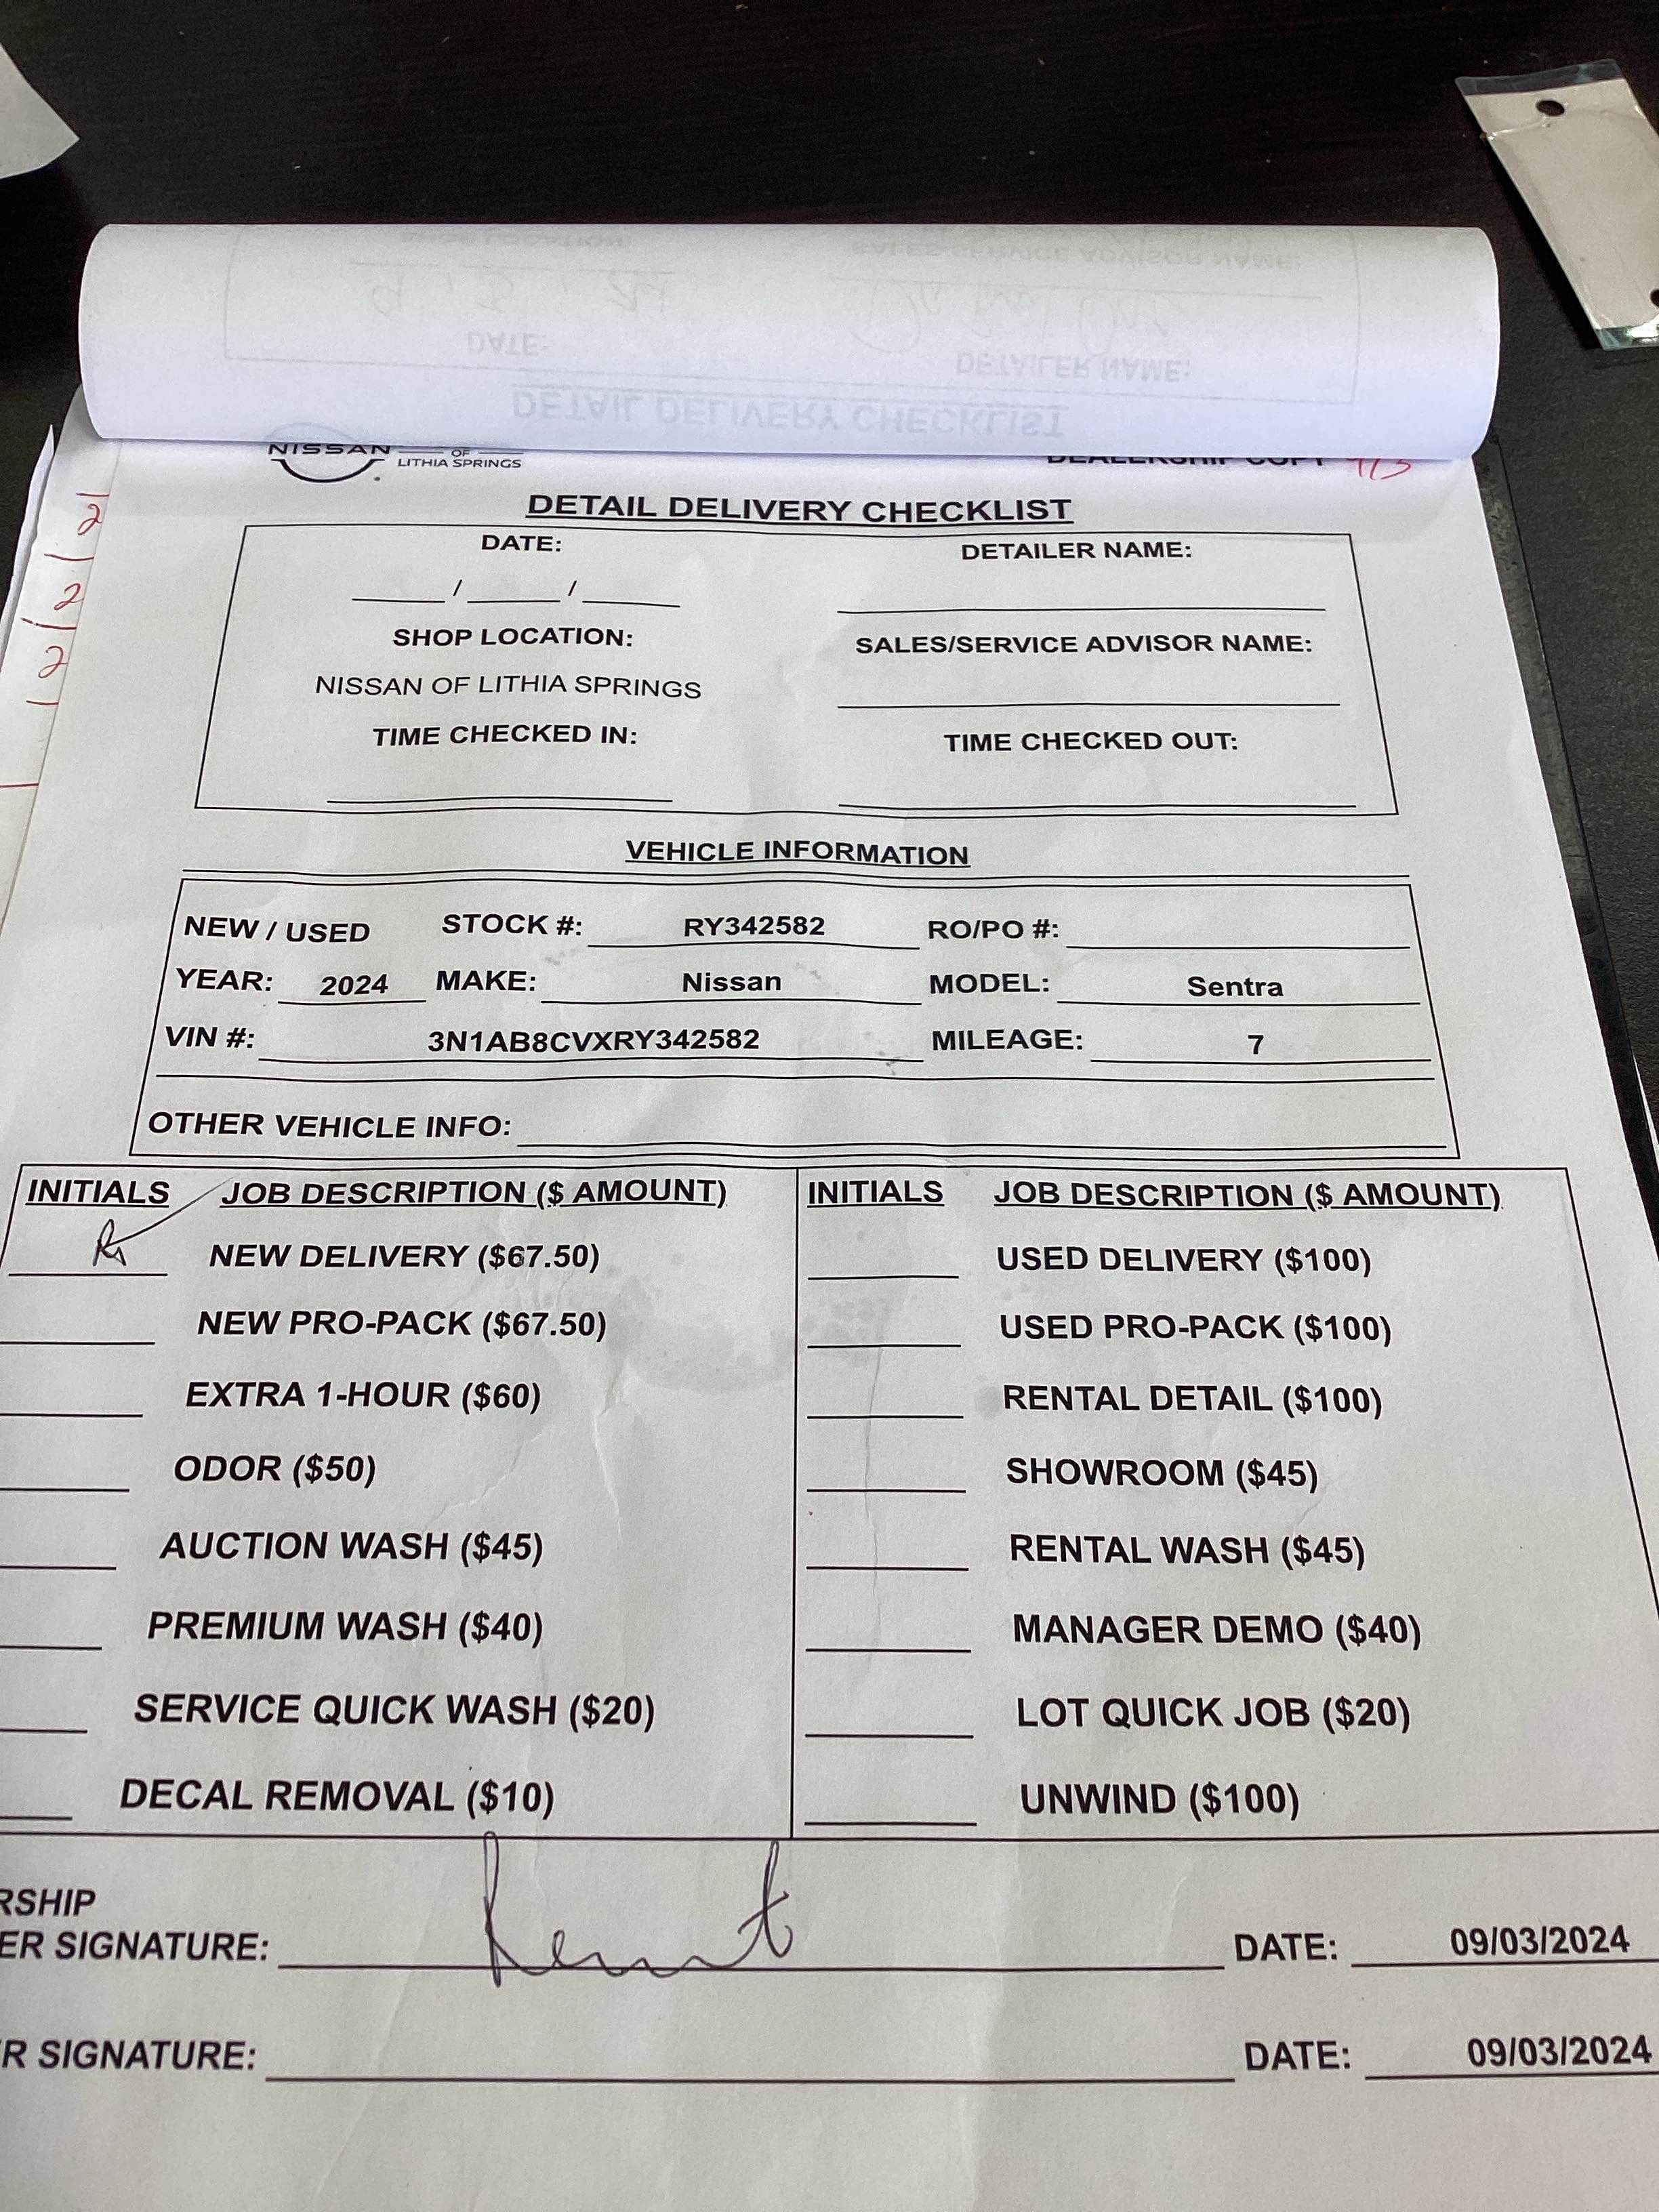 NISSAN OF LITHIA SPRINGS
DEALERSHIP COPY 9/3
DETAIL DELIVERY CHECKLIST
DATE: DETAILER NAME:
____/____/____
SHOP LOCATION: SALES/SERVICE ADVISOR NAME:
NISSAN OF LITHIA SPRINGS
TIME CHECKED IN: TIME CHECKED OUT:
VEHICLE INFORMATION
NEW / USED STOCK #: RY342582 RO/PO #:
YEAR: 2024 MAKE: Nissan MODEL: Sentra
VIN #: 3N1AB8CVXRY342582 MILEAGE: 7
OTHER VEHICLE INFO:
INITIALS JOB DESCRIPTION ($ AMOUNT) INITIALS JOB DESCRIPTION ($ AMOUNT)
NEW DELIVERY ($67.50) USED DELIVERY ($100)
NEW PRO-PACK ($67.50) USED PRO-PACK ($100)
EXTRA 1-HOUR ($60) RENTAL DETAIL ($100)
ODOR ($50) SHOWROOM ($45)
AUCTION WASH ($45) RENTAL WASH ($45)
PREMIUM WASH ($40) MANAGER DEMO ($40)
SERVICE QUICK WASH ($20) LOT QUICK JOB ($20)
DECAL REMOVAL ($10) UNWIND ($100)
RSHIP
ER SIGNATURE: DATE: 09/03/2024
R SIGNATURE: DATE: 09/03/2024